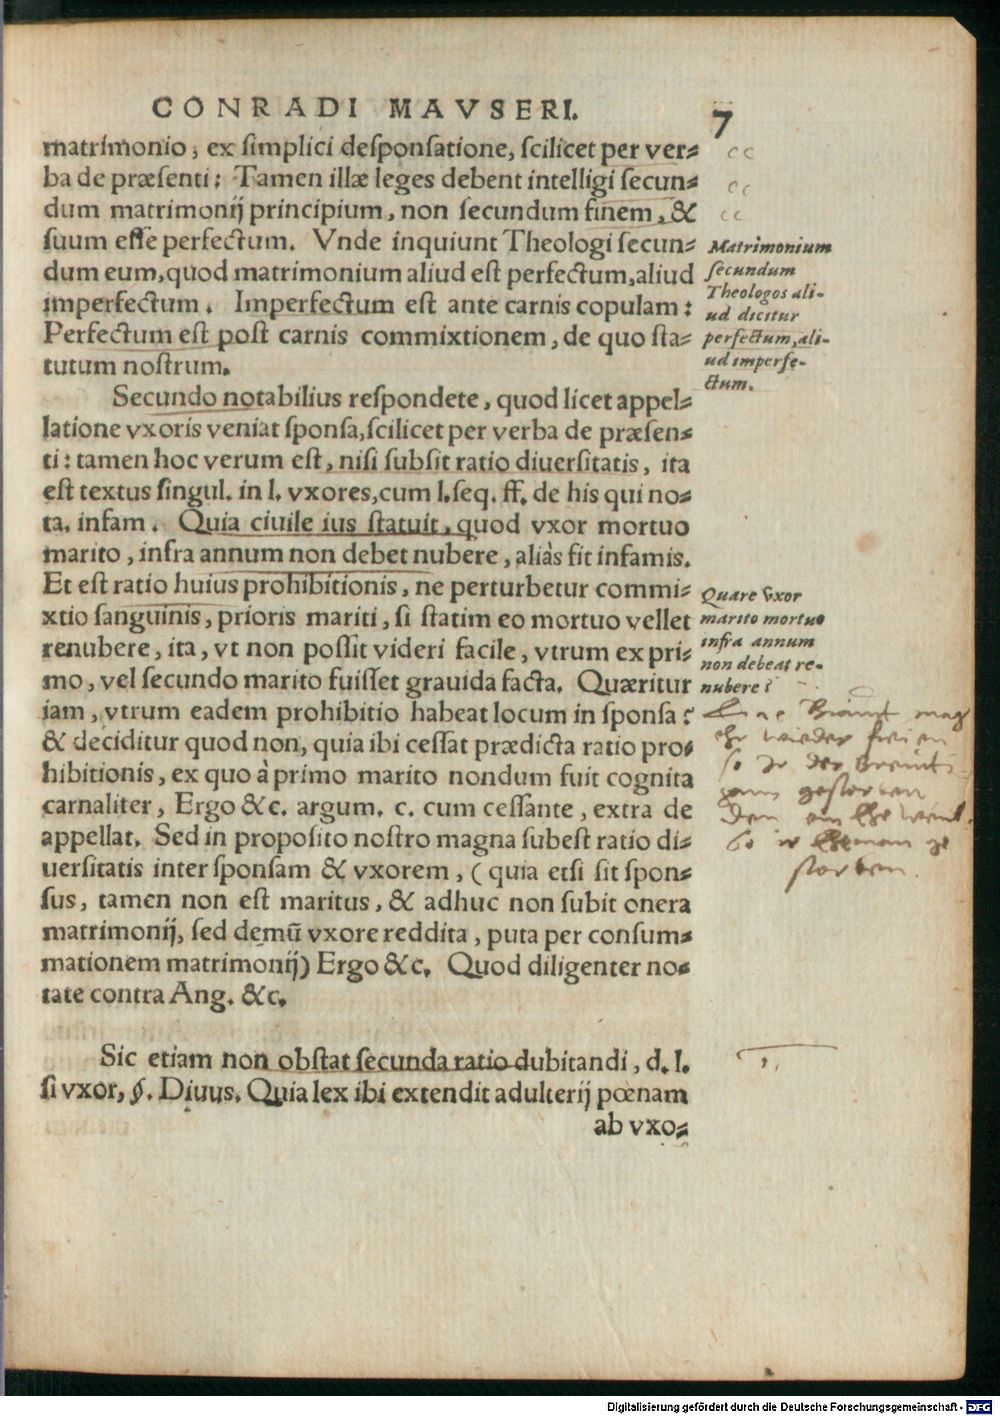 CONRADI MAVSERI. 7
matrimonio, ex simplici desponsatione, scilicet per ver-
ba de præsenti: Tamen illæ leges debent intelligi secun-
dum matrimonij principium, non secundum finem, &
suum esse perfectum. Vnde inquiunt Theologi secun-
dum eum, quod matrimonium aliud est perfectum, aliud
imperfectum. Imperfectum est ante carnis copulam:
Perfectum est post carnis commixtionem, de quo sta-
tutum nostrum.
Matrimonium
secundum
Theologos ali-
ud dicitur
perfectum, ali-
ud imperfe-
ctum.
Secundo notabilius respondete, quod licet appel-
latione vxoris veniat sponsa, scilicet per verba de præsen-
ti: tamen hoc verum est, nisi subsit ratio diuersitatis, ita
est textus singul. in l. vxores, cum l. seq. ff. de his qui no-
ta. infam. Quia ciuile ius statuit, quod vxor mortuo
marito, infra annum non debet nubere, aliàs fit infamis.
Et est ratio huius prohibitionis, ne perturbetur commi-
xtio sanguinis, prioris mariti, si statim eo mortuo vellet
renubere, ita, vt non possit videri facile, vtrum ex pri-
mo, vel secundo marito fuisset grauida facta. Quæritur
iam, vtrum eadem prohibitio habeat locum in sponsa?
& deciditur quod non, quia ibi cessat prædicta ratio pro-
hibitionis, ex quo à primo marito nondum fuit cognita
carnaliter, Ergo &c. argum. c. cum cessante, extra de
appellat. Sed in proposito nostro magna subest ratio di-
uersitatis inter sponsam & vxorem, (quia etsi sit spon-
sus, tamen non est maritus, & adhuc non subit onera
matrimonij, sed demū vxore reddita, puta per consum-
mationem matrimonij) Ergo &c. Quod diligenter no-
tate contra Ang. &c.
Quare vxor
marito mortuo
infra annum
non debeat re-
nubere?
Eine Braut mag
ehr wieder freien
so ir der Breuti
gam gestorben
den ein Ehe weib
So ir Eheman ge
storben.
Sic etiam non obstat secunda ratio dubitandi, d. l.
si vxor, §. Diuus. Quia lex ibi extendit adulterij pœnam
ab vxo-
Digitalisierung gefördert durch die Deutsche Forschungsgemeinschaft - DFG